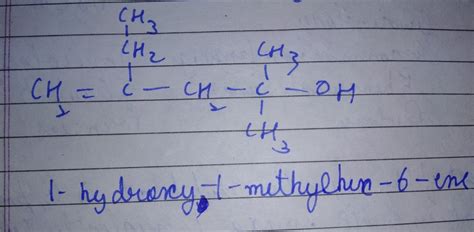 CH3
CH2 CH3
CH2 = C — CH2 — C — OH
CH3
1- hydroxy-1-methylhex-6-ene